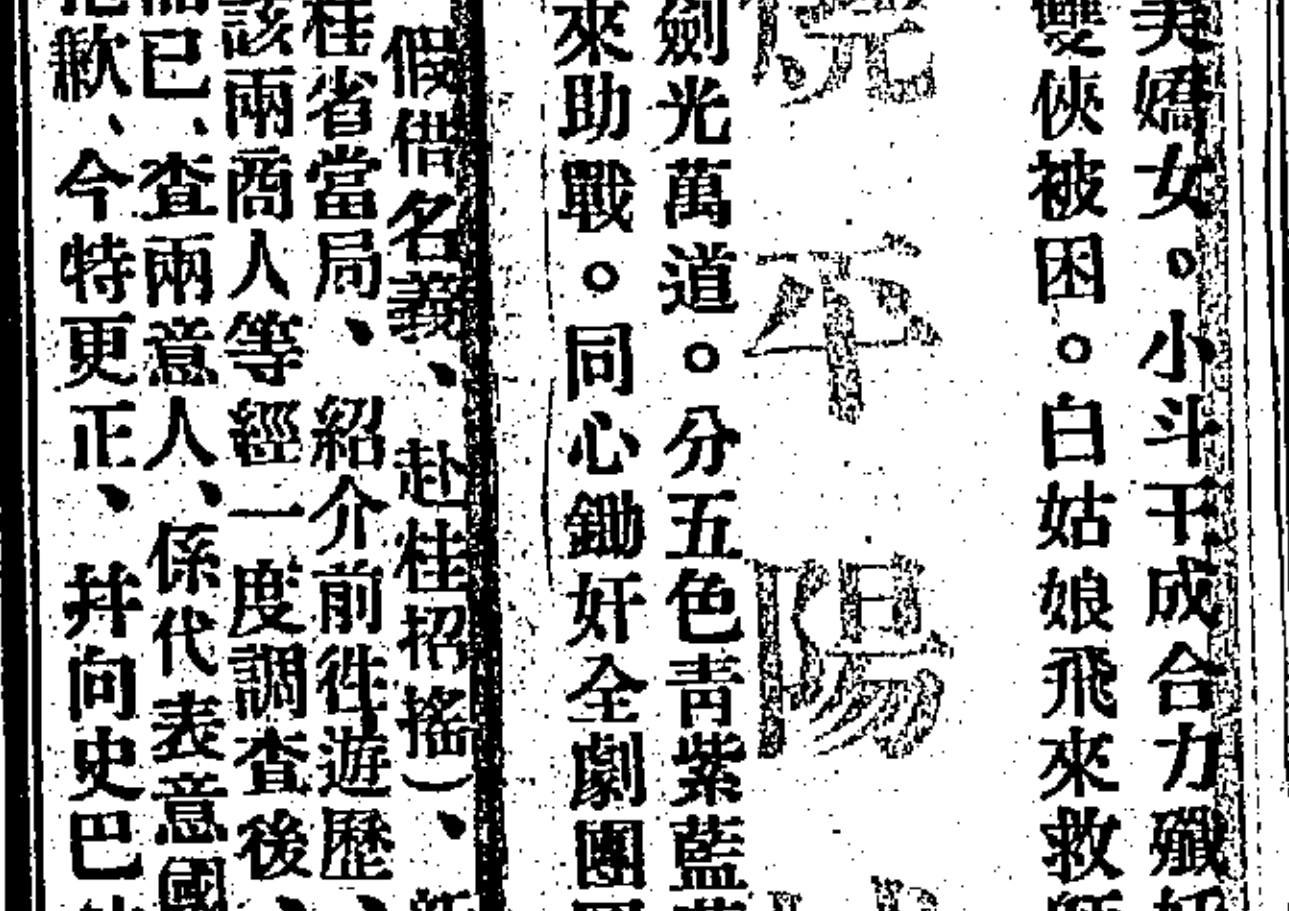 美嬌女。小斗干成合力殲奸
雙俠被困。白姑娘飛來救師
院平陽
劍光萬道。分五色青紫藍黃
來助戰。同心鋤奸全劇團圓
假借名義、赴桂招搖)、新
桂省當局、紹介前徃遊歷、
該兩商人等經一度調查後、
已、查兩意人、係代表意國
歉、今特更正、幷向史巴